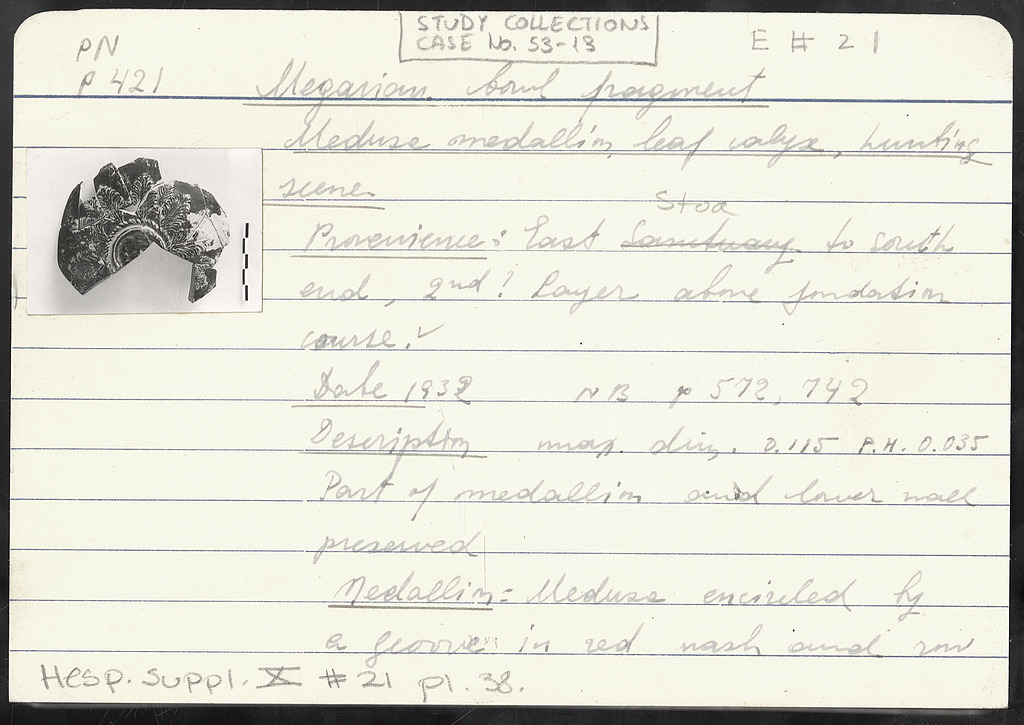 STUDY COLLECTIONS
CASE No. 53-13
E # 21
PN
P 421
Megarian bowl fragment
Meduse medallion, leaf calyx, hunting
scene
Stoa
Provenience: East Sanctuary to south
end, 2nd? Layer above fondation
course.
Date 1932 NB p 572, 742
Description max. dim. 0.115 P.H. 0.035
Part of medallion and lower wall
preserved
Medallion: Meduse encircled by
a groove in red wash and row
Hesp. Suppl. X #21 pl. 38.